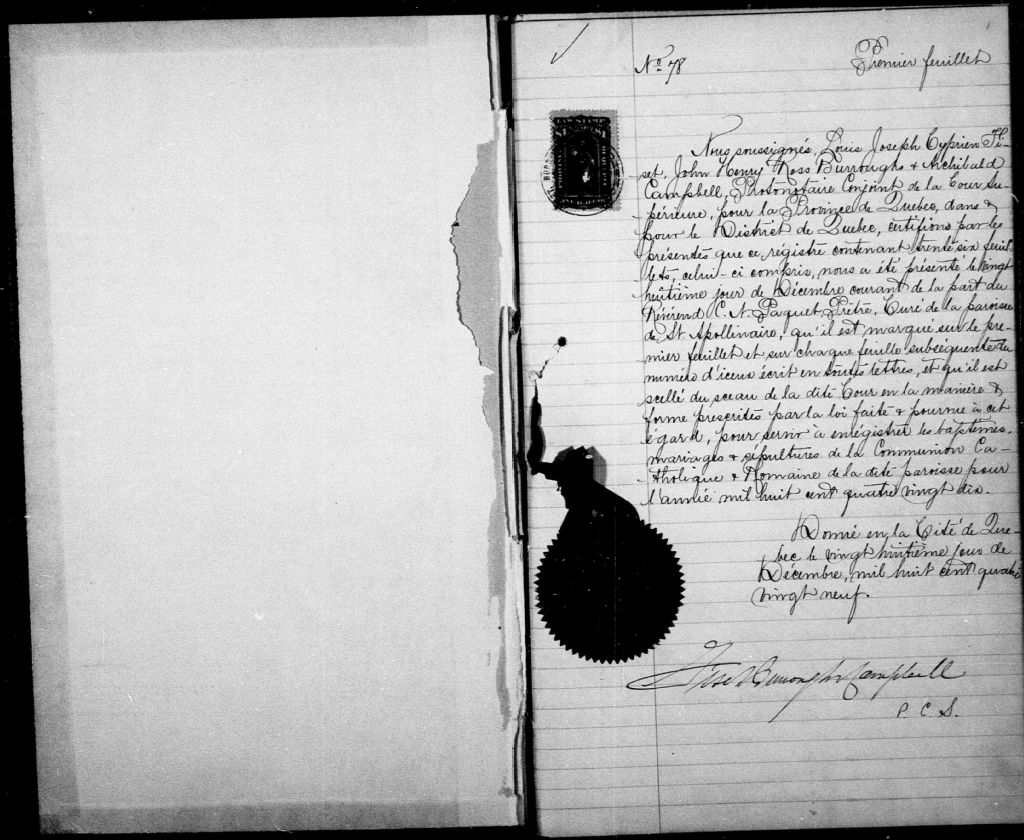 No 78
Premier feuillet
LAW STAMP
$1 $1
Nous soussignés, Louis Joseph Cyprien Fi-
set, John Henry Ross Burroughs & Archibald
Campbell, Protonotaire Conjoint de la Cour Su-
périeure, pour la Province de Quebec, dans &
pour le District de Quebec, certifions par les
présentes que ce régistre contenant trente six feuil
lets, celui-ci compris, nous a été présenté le vingt
huitième jour de Décembre courant de la part du
Révérend C. N. Paquet, Prêtre, Curé de la paroisse
de St Apollinaire, qu'il est marqué sur le pre-
mier feuillet et sur chaque feuille subséquente du
numéro d'iceux écrit en toutes lettres, et qu'il est
scellé du sceau de la dite Cour en la manière &
forme prescrites par la loi faite & pourvue à cet
égard, pour servir à enrégistrer les baptêmes,
mariages & sépultures de la Communion Ca-
tholique & Romaine de la dite paroisse pour
l'année mil huit cent quatre vingt dix.
Donné en la Cité de Que-
bec le vingt huitième jour de
Décembre, mil huit cent quatre
vingt neuf.
Fiset Burroughs Campbell
P. C. S.